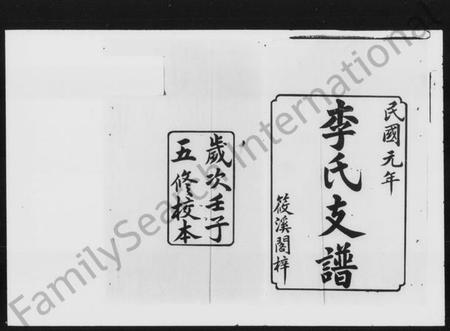 民國元年
李氏支譜
筱溪閣梓
歲次壬子
五修校本
FamilySearch International